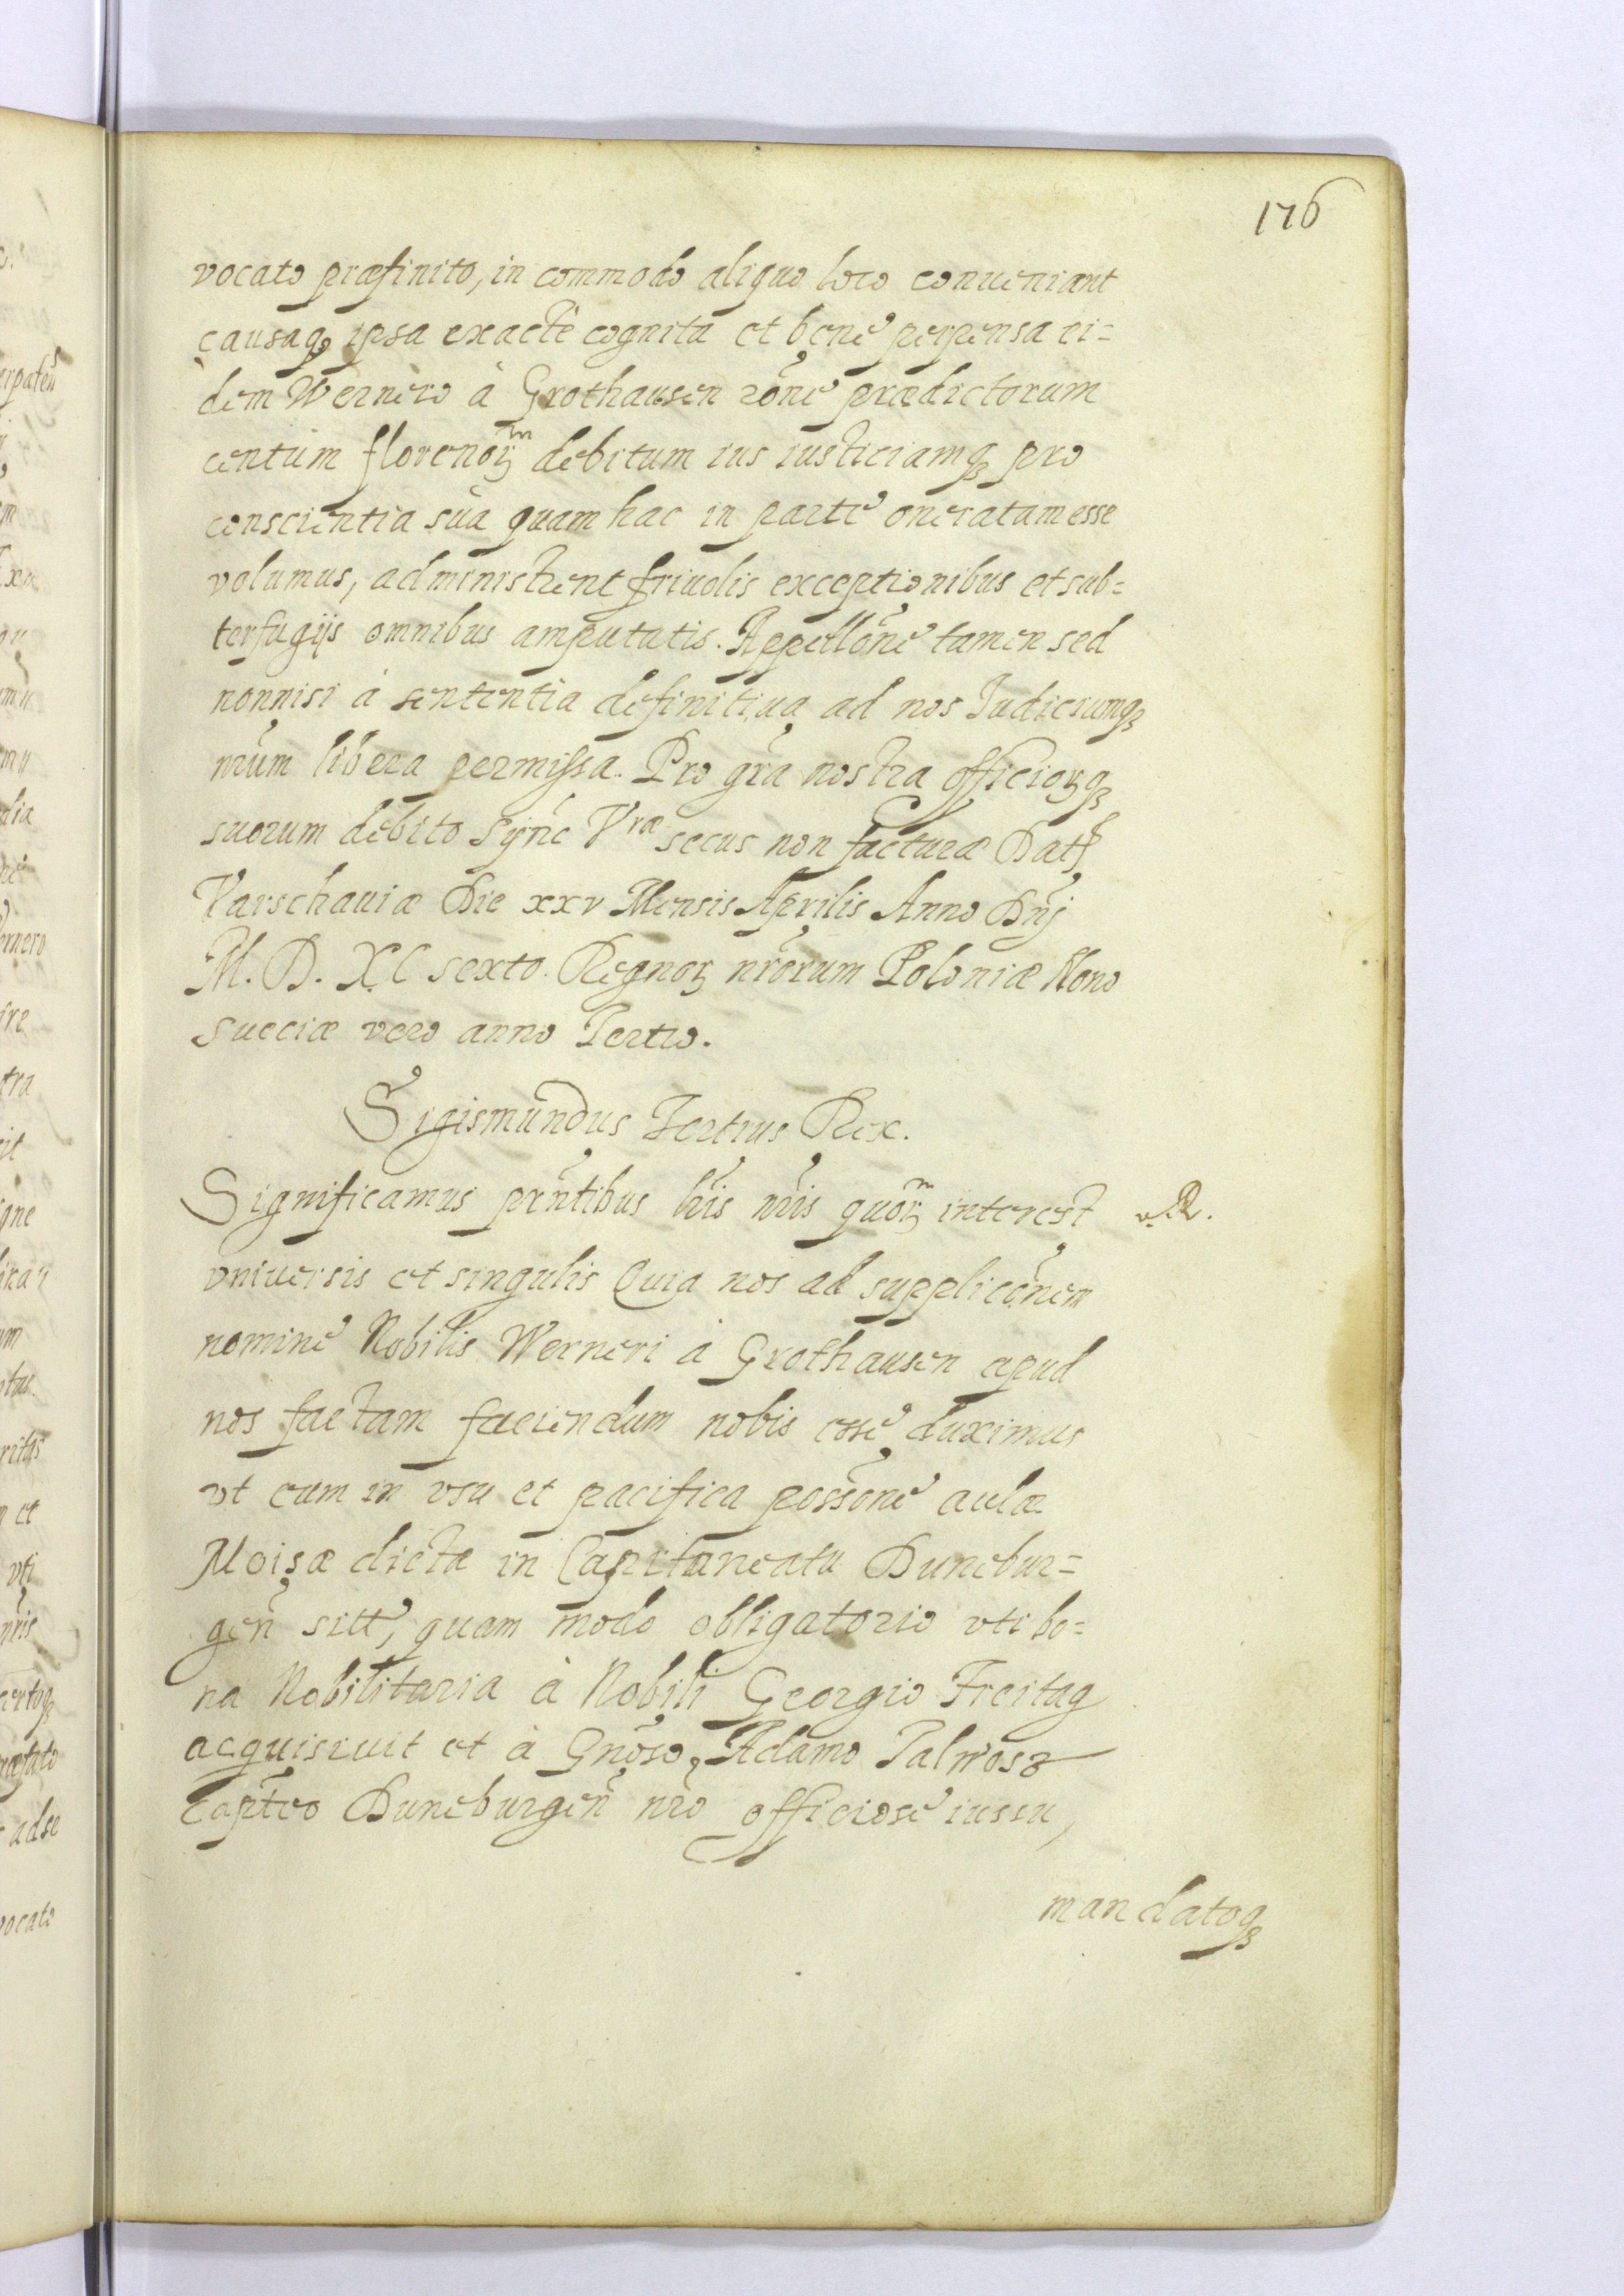 176
vocato præfinito, in commodo aliquo loco conueniant
causaq3 ipsa exactè cognita et benè perpensa ei=
dem Wernero à Grothausen rõne prædictorum
centum florenoꝝ debitum ius iusticiamq3 pro
conscientia sua quam hac in parte oneratam esse
volumus, administrent friuolis exceptionibus et sub=
terfugijs omnibus amputatis. Appellõne tamen sed
nonnisi à sententia definitiua ad nos Iudiciumq3
nrũm libera permissa. Pro grã nostra officioꝝq3
suorum debito Synč Vræ secus non facturæ Dat
Varschauiæ Die xxv Mensis Aprilis Anno Dnĩ
M. D. XC sexto. Regnoꝝ nrõrum Poloniæ Nono
Sueciæ vero anno Tertio.
Sigismundus Tertius Rex.
Significamus prñtibus lrĩs nrĩs quoꝝ interest
vniuersis et singulis Quia nos ad supplicõnem
nomine Nobilis Werneri à Grothausen apud
nos factam faciendum nobis esse duximus
vt eum in vsu et pacifica possõne aulæ
Moisæ dictæ in Capitaneatu Dunebur=
geñ sitæ, quam modo obligatorio vti bo=
na Nobilitaria à Nobili Georgio Freitag
acquisiuit et à Gnõso Adamo Talwosz
Capt̃eo Duneburgeñ nrõ officiose iussu,
mandatoq3